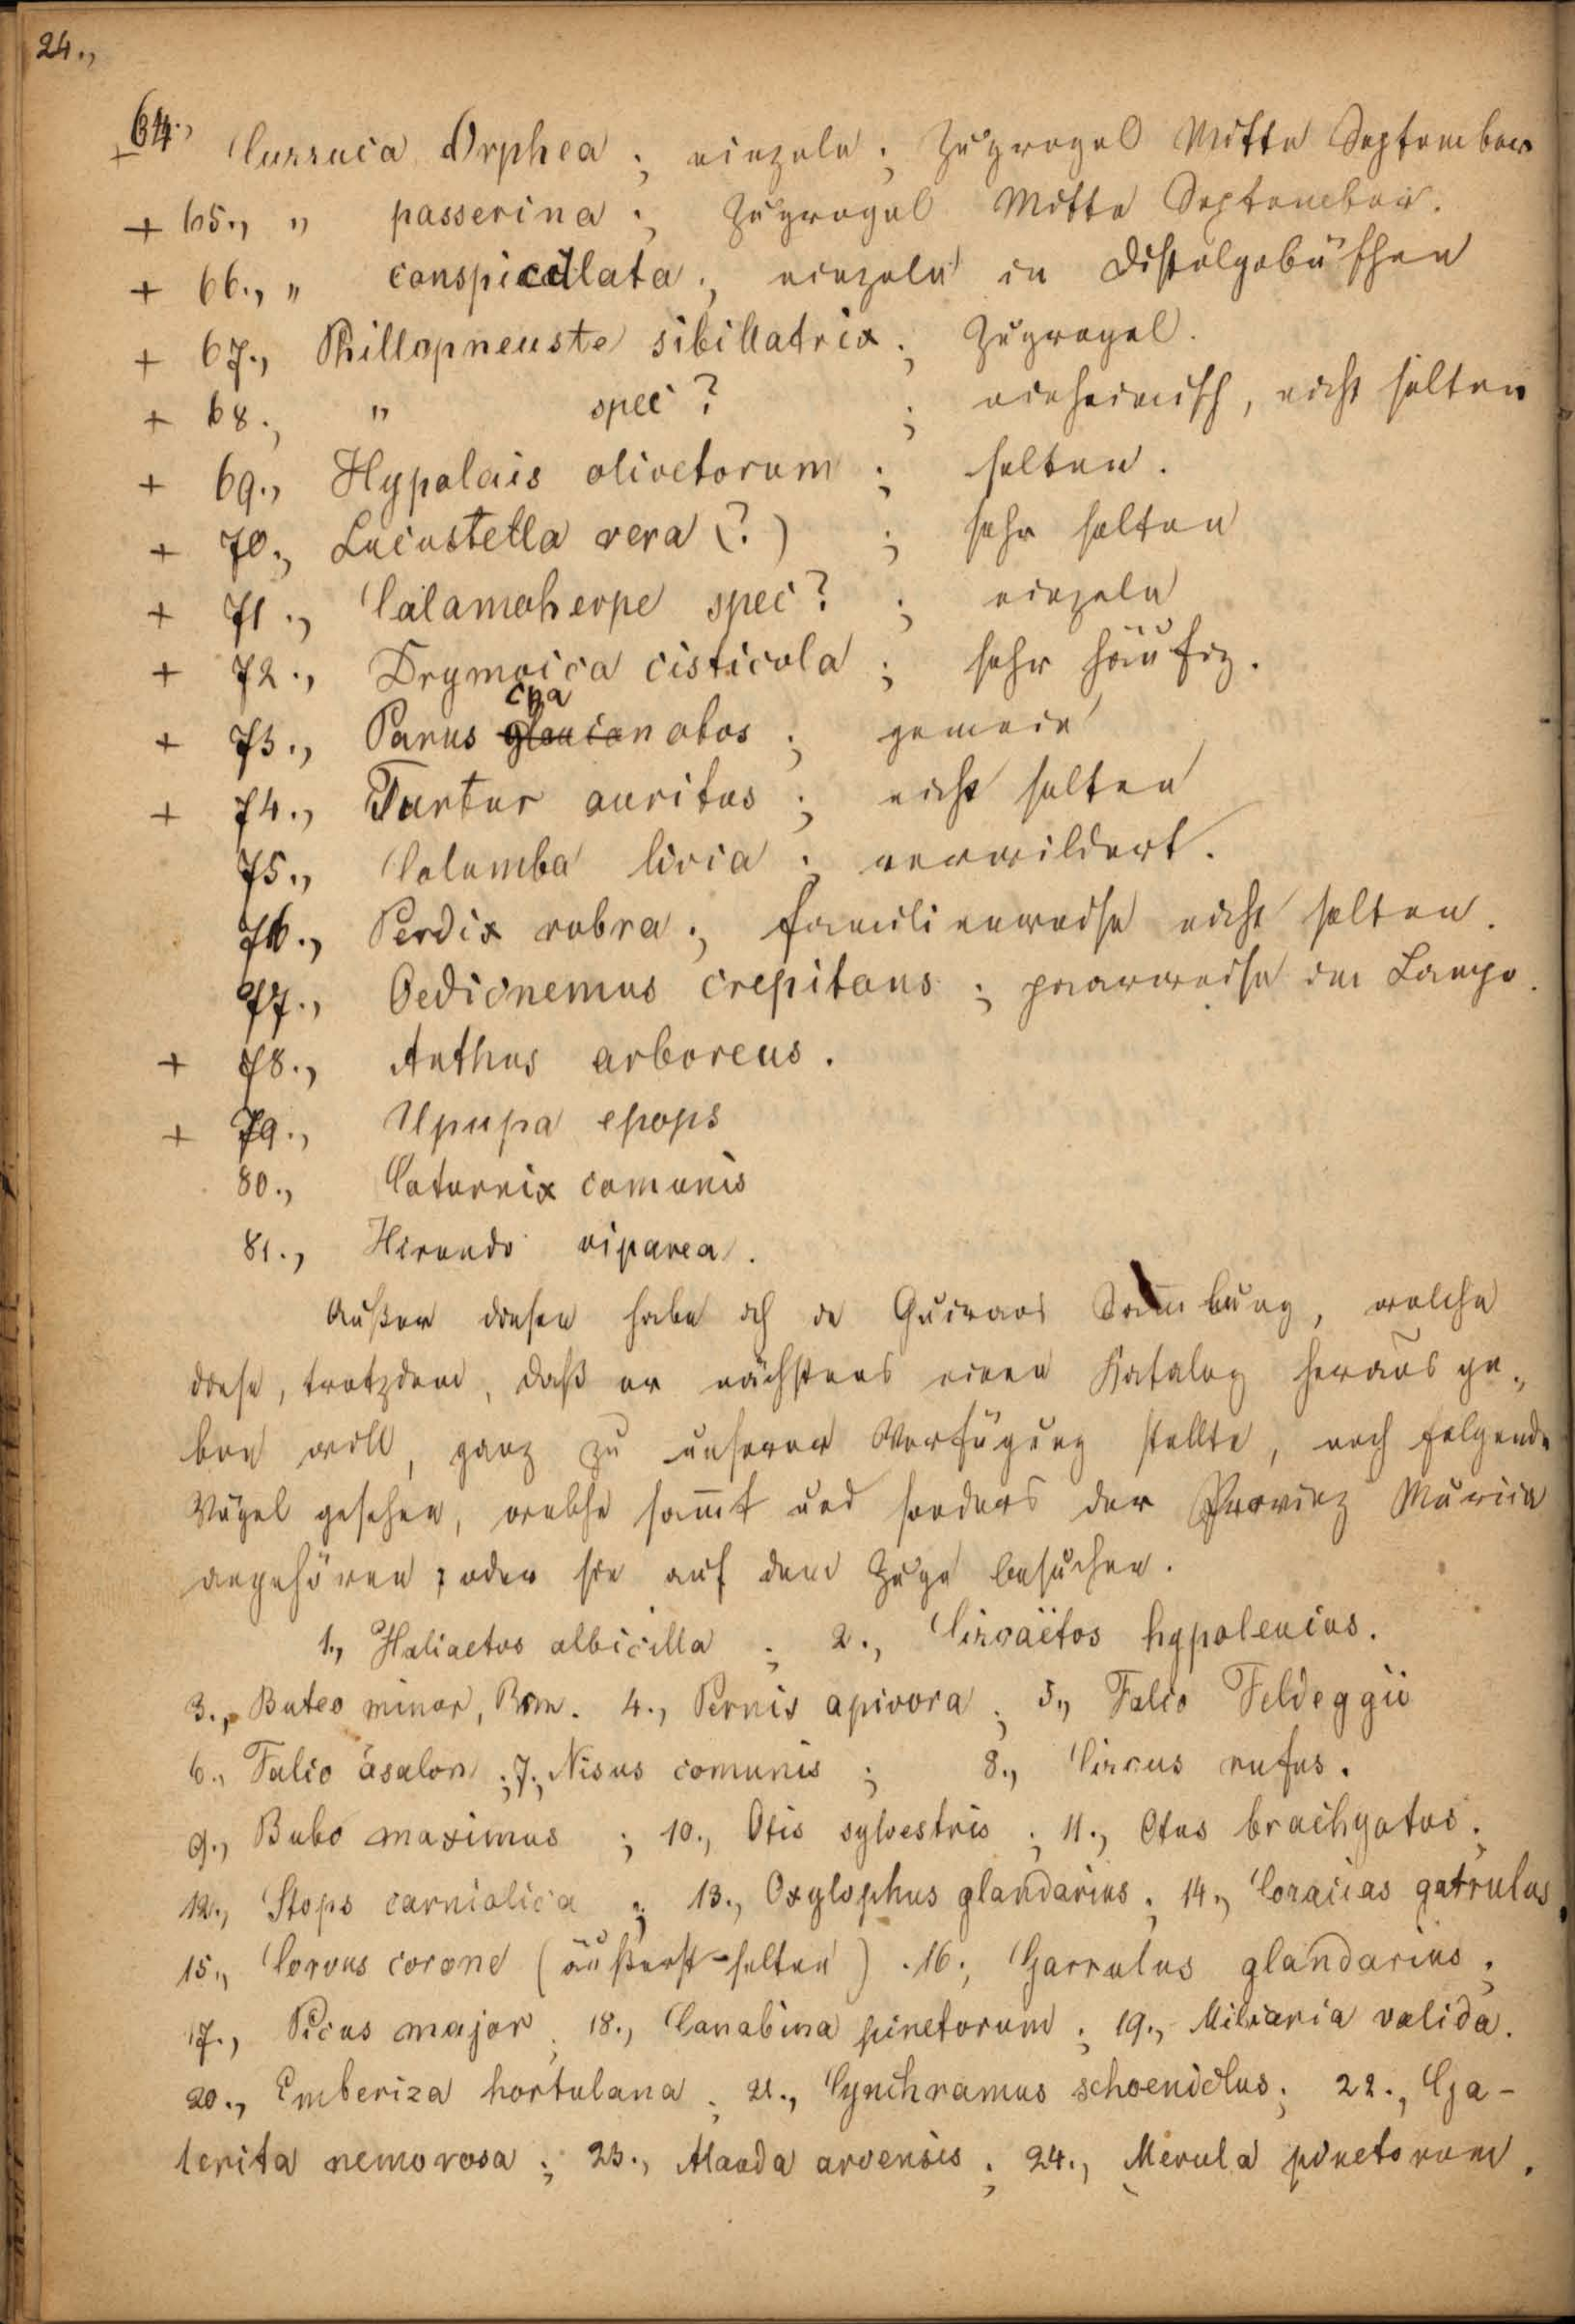 24.,
+ 64., Curruca Orphea ; einzeln ; Zugvogel Mitte September
+ 65., " passerina ; Zugvogel Mitte September.
+ 66., " conspicillata ; einzeln in Distelgebüschen
+ 67., Phillopneuste sibillatrix ; Zugvogel.
+ 68., " spec? ; einheimisch, nicht selten
+ 69., Hypolais olivetorum ; selten.
+ 70., Locustella vera (?) ; sehr selten
+ 71., Calamoherpe spec? ; einzeln
+ 72., Drymoica cisticola ; sehr häufig.
+ 73., Parus cyanotos ; gemein
+ 74., Turtur auritus ; nicht selten
75., Columba livia ; verwildert.
76., Perdix rubra ; familienweise nicht selten.
77., Oedicnemus crepitans ; paarweise im Campo.
+ 78., Anthus arboreus.
+ 79., Upupa epops
80., Coturnix comunis
81., Hirundo riparea.
Außer diesen habe ich in Guiraos Sam̅lung, welche
diese, trotzdem, daß er nächstens einen Katalog heraus ge„
ben will, ganz zu unserer Verfügung stellte, noch folgende
Vögel gesehen, welche sam̅t und sonders der Provinz Murcia
angehören, oder sie auf dem Zuge besuchen.
1., Haliaetos albicilla ; 2., Circaëtos hypoleucus.
3., Buteo minor, Brm. 4., Pernis apivora ; 5., Falco Feldeggii
6., Falco äsalon ; 7., Nisus comunis ; 8., Circus rufus.
9., Bubo maximus ; 10., Otis sylvestris ; 11., Otus brachyotus ;
12., Skops carniolica ; 13., Oxylophus glandarius ; 14., Coracias garrulus.
15., Corvus corone (äußerst selten). 16., Garrulus glandarius ;
17., Picus major ; 18., Canabina pinetorum ; 19., Miliaria valida.
20., Emberiza hortulana ; 21., Cynchramus schoeniclus ; 22., Ga-
lerita nemorosa ; 23., Alauda arvensis ; 24., Merula pinetorum.